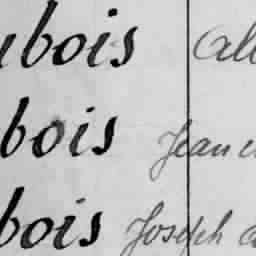 ubois Alb
bois Jean
bois Joseph